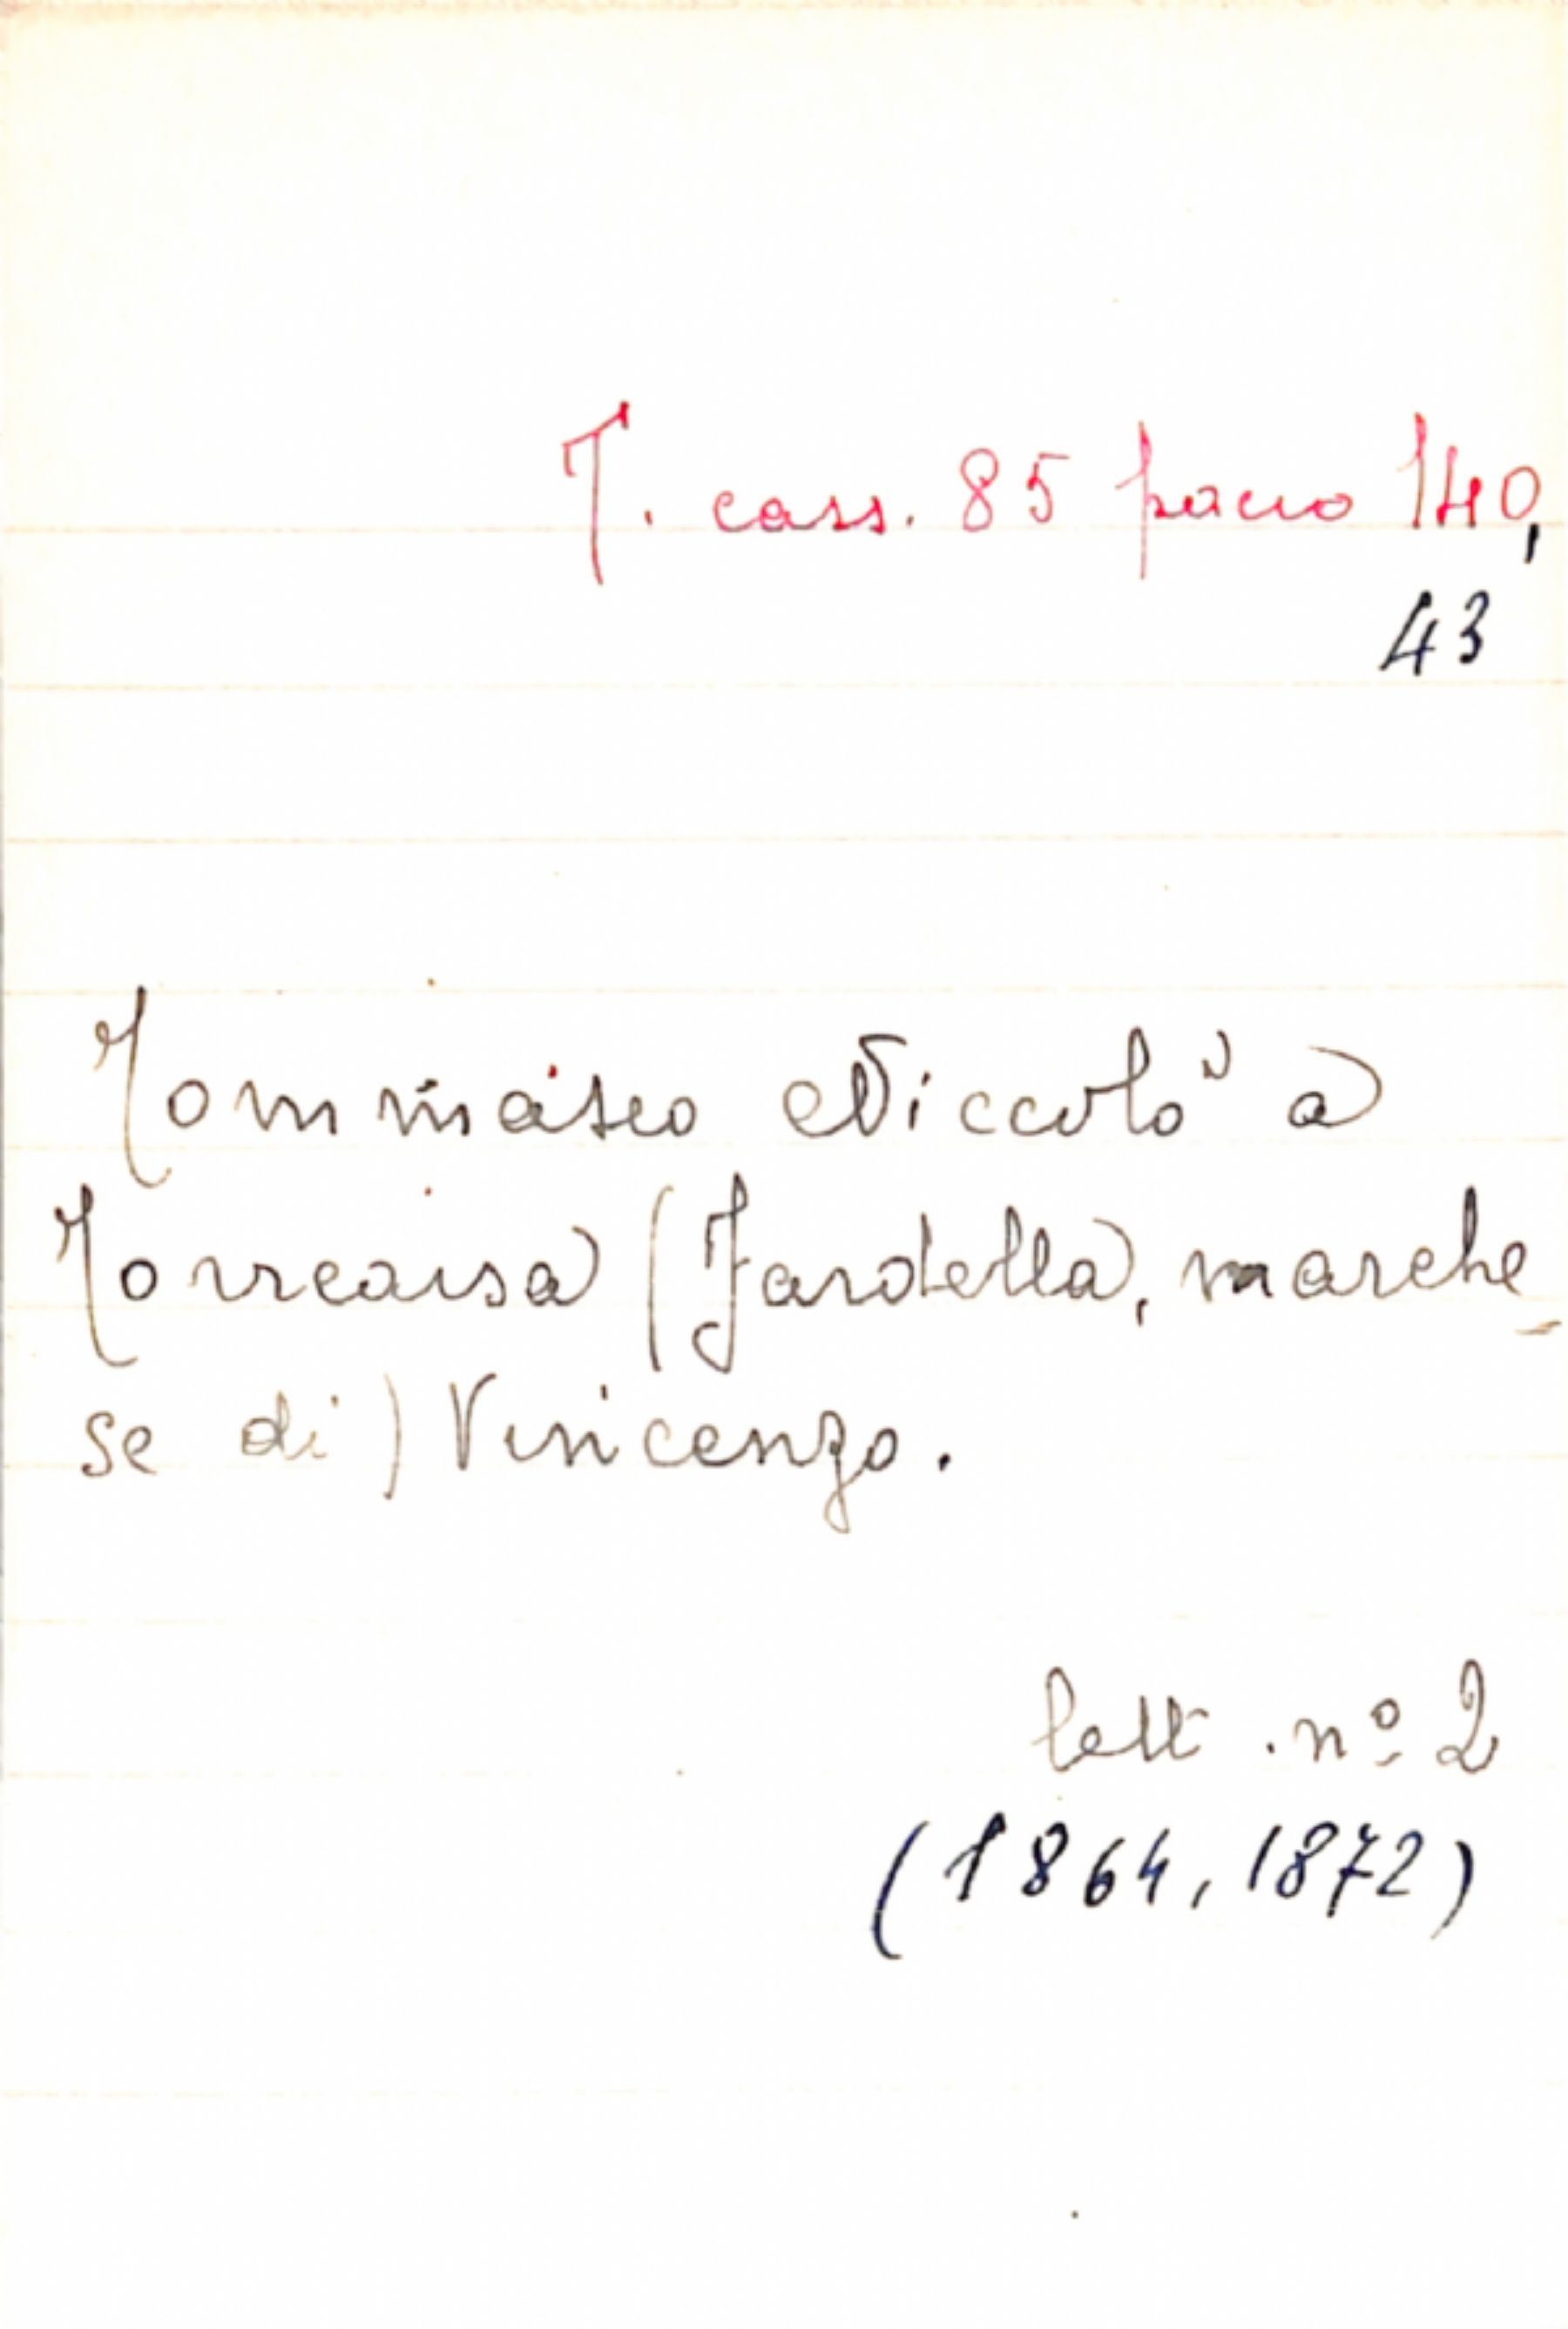 T. cass. 85 pacco 140,
43
Tommaseo Niccolò a
Torrearsa (Fardella, marche-
se di) Vincenzo.
lett. nº 2
(1864, 1872)